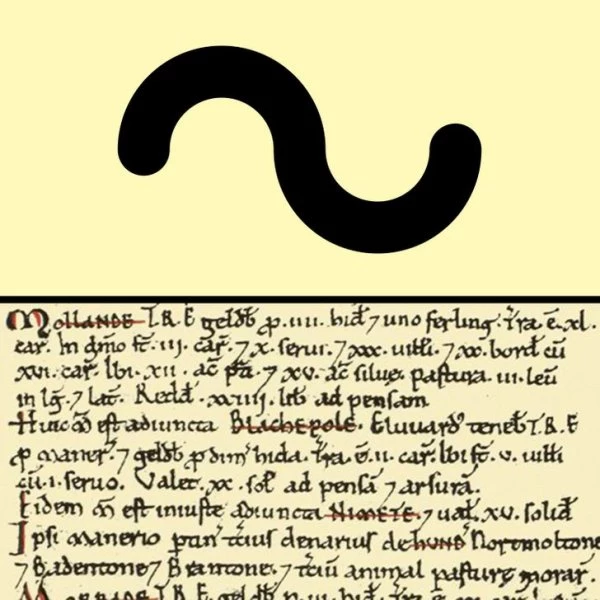 Mollande T.R.E geldb̄ ꝓ .iiii. hid̄ ⁊ uno ferling. Tr̄a .ē. xl.
car̄. In dn̄io st̄ .iii. car̄. ⁊ x. serui. ⁊ xxx. uilli. ⁊ xx. bord̄ cū
xvi. car̄. Ibi .xii. ac̄ p̄ti. ⁊ xv. ac̄ siluę. Pastura .iii. leū
in lḡ. ⁊ lat̄. Redd̄ .xxiiii. lib̄ ad pensam
Huic m̄ est adiuncta Blachepole. Eluuard' teneb̄ T.R.E
ꝓ maner̄. ⁊ geldb̄ ꝓ dim̄ hida. Tr̄a .ē. ii. car̄. Ibi st̄ .v. uilli
cū .i. seruo. Valet .xx. sol̄ ad pensā ⁊ arsurā.
Eidem m̄ est iniuste adiuncta Nimete. ⁊ ual̄ .xv. solid̄
Ipsi manerio ptin̄ tcius denarius de hund̄ Nortmoltone
⁊ Badentone ⁊ Brantone. ⁊ tciū animal pasturę morar̄.